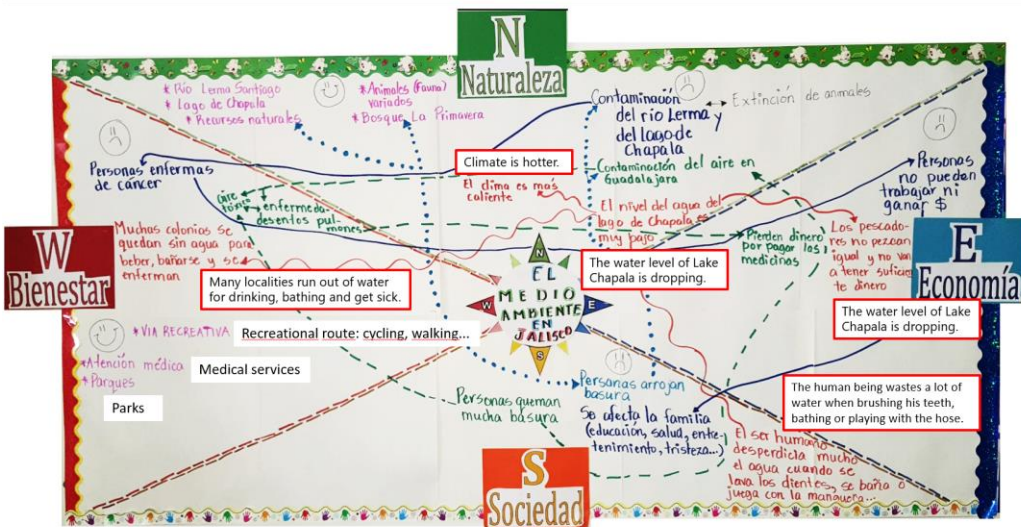 N
Naturaleza
* Río Lerma Santiago
* Lago de Chapala
* Recursos naturales
* Animales (Fauna)
variados
* Bosque La Primavera
Contaminación
del río Lerma y
del lago de
Chapala
Extinción de animales
Personas enfermas
de cáncer
Climate is hotter.
El clima es más
caliente
Contaminación del aire en
Guadalajara
Personas
no pueden
trabajar ni
ganar $
Aire
tóxico
enfermeda-
desentos pul-
mones
El nivel del agua del
lago de Chapala es
muy bajo
Pierden dinero
por pagar las
medicinas
Los pescado-
res no pezcan
igual y no van
a tener suficien
te dinero
W
Bienestar
Muchas colonias se
quedan sin agua para
beber, bañarse y se
enferman
Many localities run out of water
for drinking, bathing and get sick.
The water level of Lake
Chapala is dropping.
E
Economía
The water level of Lake
Chapala is dropping.
N
W
E
S
EL
MEDIO
AMBIENTE
EN
JALISCO
* VIA RECREATIVA
Recreational route: cycling, walking...
*Atención médica
Medical services
* Parques
Parks
Personas queman
mucha basura
Personas arrojan
basura
Se afecta la familia
(educación, salud, entre-
tenimiento, tristeza...)
The human being wastes a lot of
water when brushing his teeth,
bathing or playing with the hose.
El ser humano
desperdicia mucho
el agua cuando se
lava los dientes, se baña o
juega con la manguera...
S
Sociedad